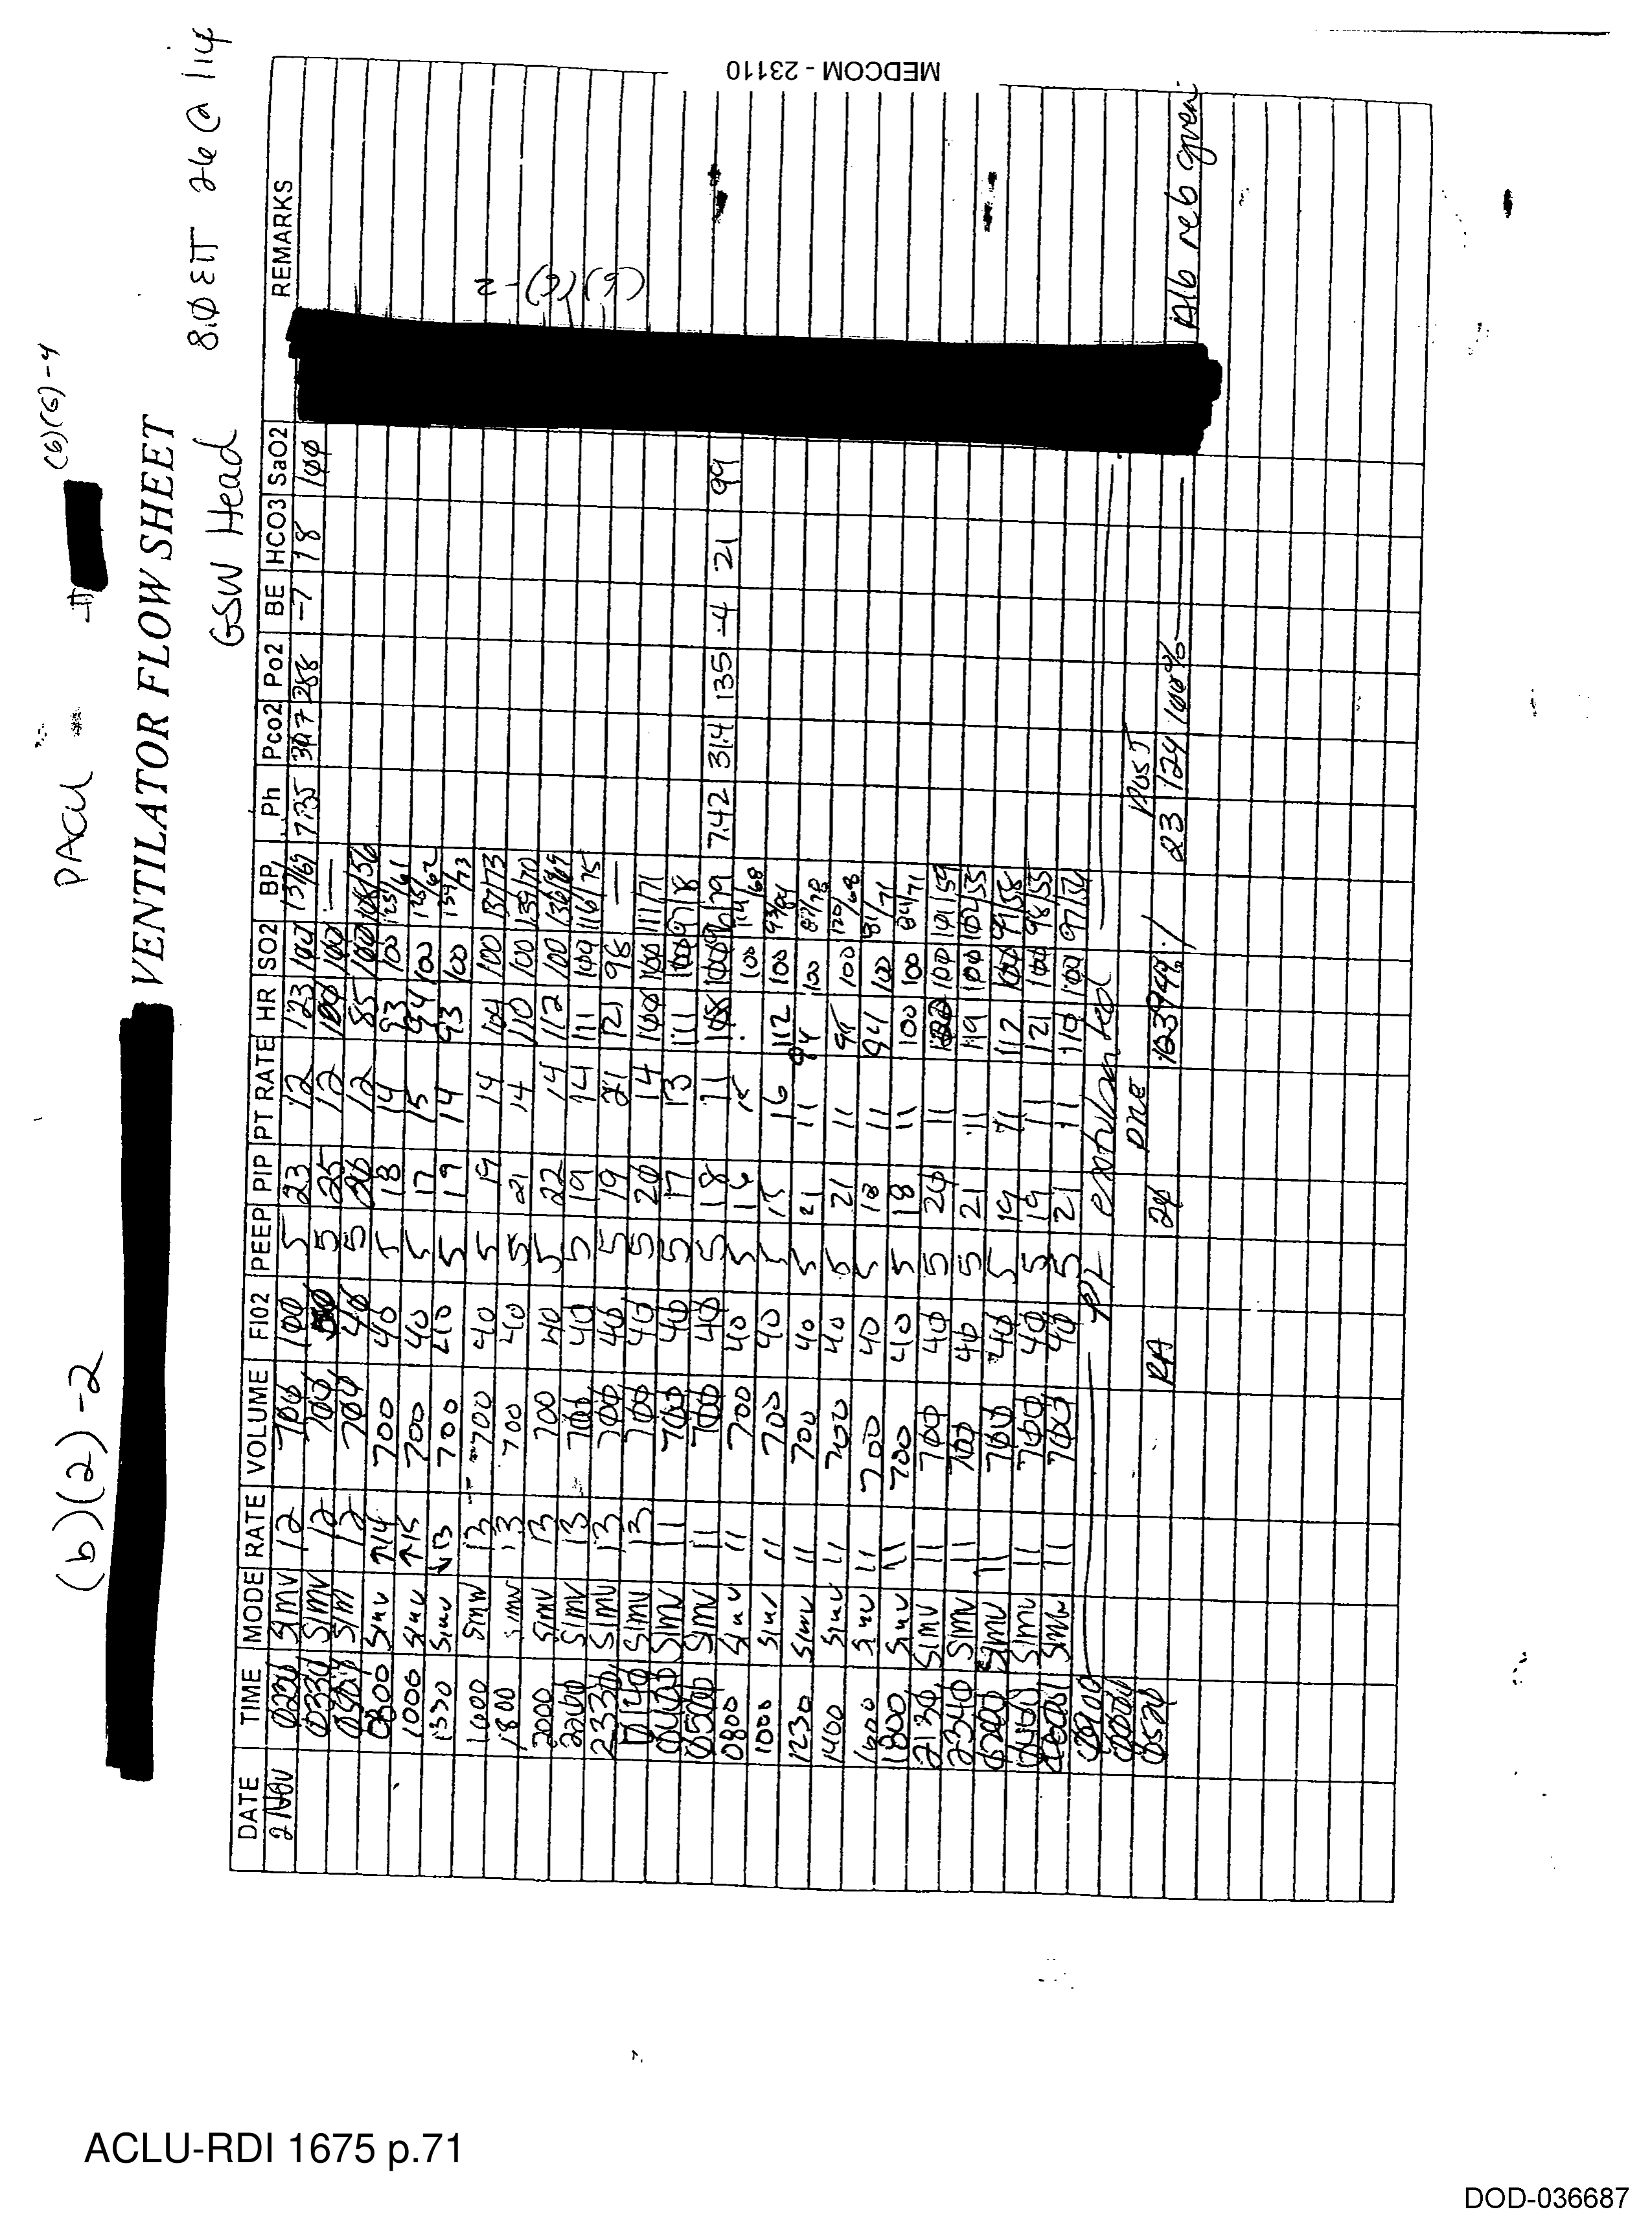 (b)(2)-2
PACU # (b)(6)-4
VENTILATOR FLOW SHEET
GSW Head 8.0 ETT 26 @ lip
DATE TIME MODE RATE VOLUME FI02 PEEP PIP PT RATE HR SO2 BP Ph Pco2 Po2 BE HCO3 SaO2 REMARKS
2 Nov SIMV 12 700 100 5 23 12 123 100 7.35 288 -7 18 100
0330 SIMV 12 700 5 25 12 100 100 —
12 700 40 5 20 12 85 100 108/56
0800 SIMV ↑14 700 40 5 18 14 93 100 125/61
1000 SIMV ↑15 700 40 5 17 15 94 100 125/62
1330 SIMV ↓13 700 40 5 19 14 93 100 139/73
1600 SIMV 13 700 40 5 19 14 104 100 137/73
1800 SIMV 13 700 40 5 21 14 110 100 139/70
2000 SIMV 13 700 40 5 22 14 112 100
2200 SIMV 13 700 40 5 19 14 111 100 116/75
2330 SIMV 13 700 40 5 19 21 121 98 —
0140 SIMV 13 700 40 5 20 14 100 100 111/71
0400 SIMV 11 700 40 5 17 13 111 100 97/78
0500 SIMV 11 700 40 5 18 11 108 100 7.42 31.4 135 -4 21 99
0800 SIMV 11 700 40 5 16 100 114/68
1000 SIMV 11 700 40 5 15 16 112 100
1230 SIMV 11 700 40 5 21 11 94 100 87/78
1400 SIMV 11 700 40 5 21 11 95 100 120/68
1600 SIMV 11 700 40 5 18 11 94 100 81/71
1800 SIMV 11 700 40 5 18 11 100 100 84/71
2130 SIMV 11 700 40 5 20 11 100 101/59
2340 SIMV 11 700 40 5 21 11 119 100 102/53
0200 SIMV 11 700 40 5 19 11 112 100 99/58
0400 SIMV 11 700 40 5 19 11 121 100 98/55
SIMV 11 700 40 5 21 11 119 100 97/54
PT extubated
PRE POST
0520 RA 20 23 124 100% Alb neb given
(b)(6)-2
MEDCOM - 23110
ACLU-RDI 1675 p.71
DOD-036687